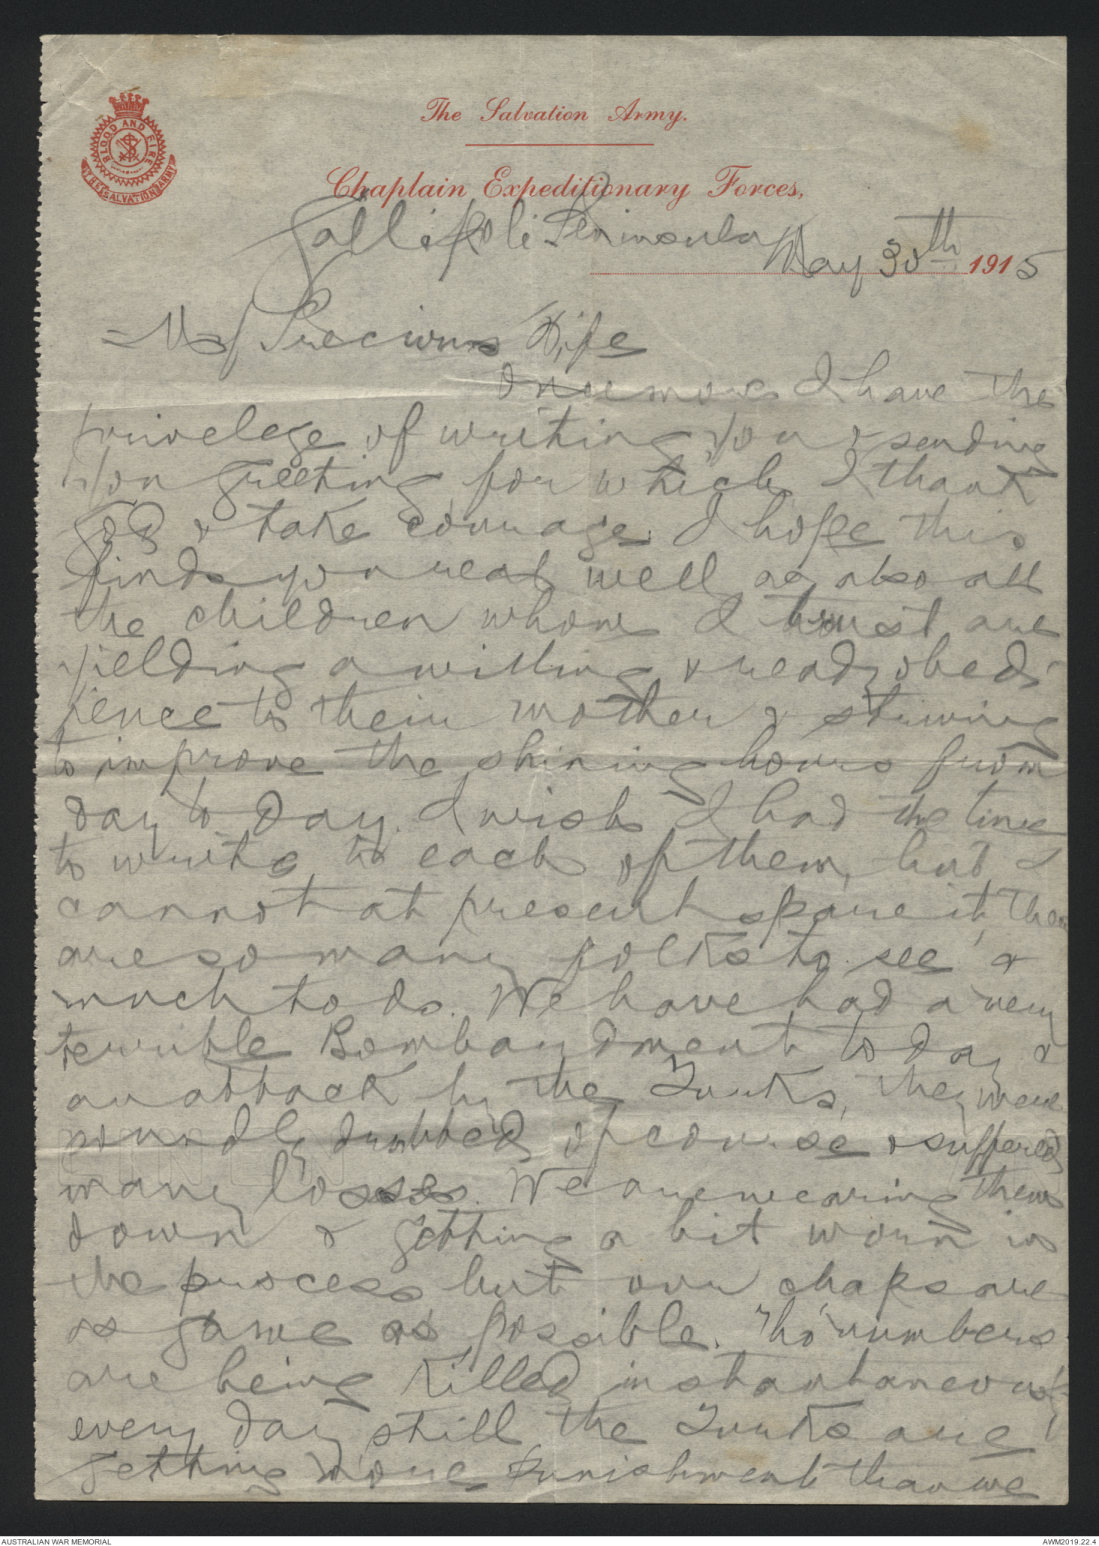 BLOOD AND FIRE
THE SALVATION ARMY
The Salvation Army.
Chaplain Expeditionary Forces,
Gallipoli Peninsula
May 30th 1915
My Precious Wife
Once more I have the
privelege of writing you & sending
you greeting for which I thank
God & take courage. I hope this
finds you real well as also all
the children whom I trust are
yielding a willing & ready obed-
ience to their mother & striving
to improve the shining hours from
day to day. I wish I had the time
to write to each of them, but I
cannot at present spare it, there
are so many folks to see &
much to do. We have had a very
terrible Bombardment today &
an attack by the Turks, they were
soundly drubbed of course & suffered
many losses. We are wearing them
down & getting a bit worn in
the process but our chaps are
as game as possible. Tho' numbers
are being killed instantaneously
every day, still the Turks are
getting more punishment than we
AUSTRALIAN WAR MEMORIAL
AWM2019.22.4